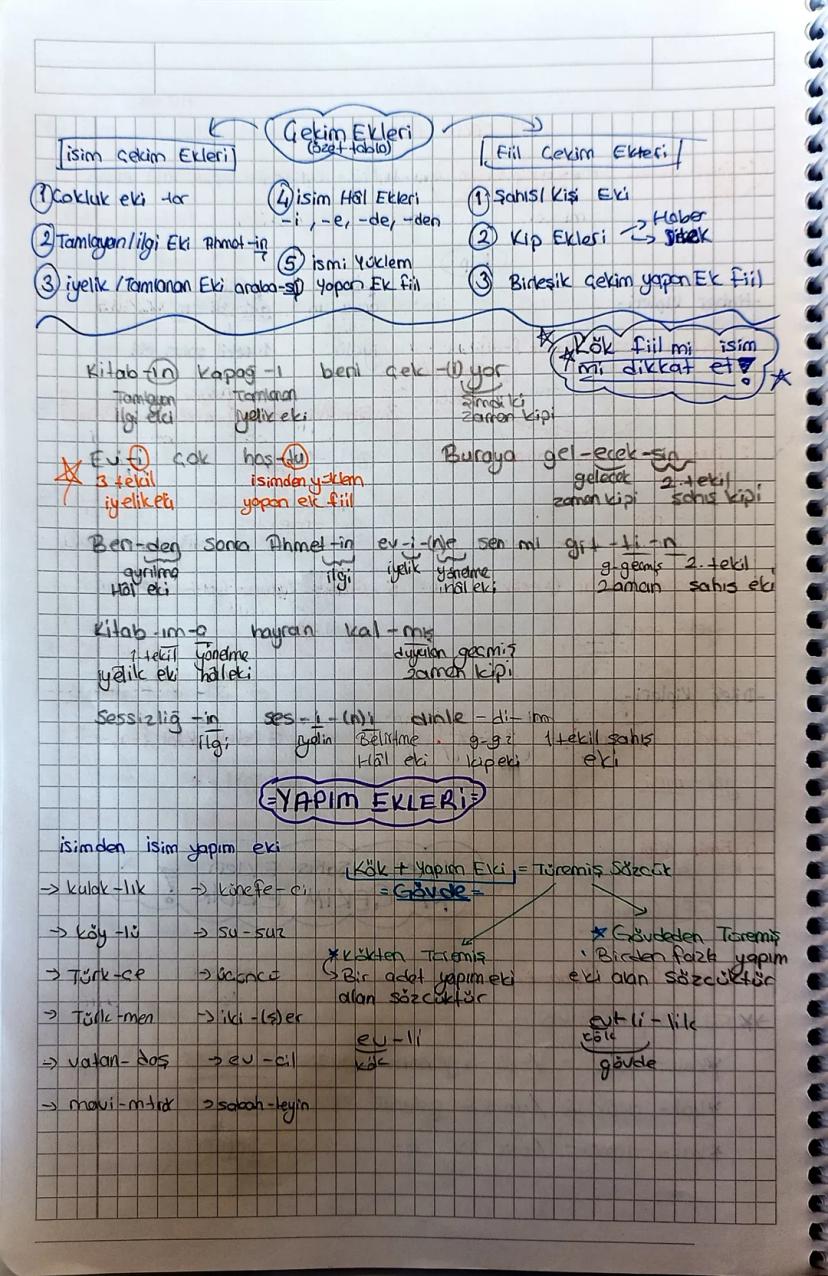 Çekim Ekleri
(özet tablo)
isim Çekim Ekleri
① Çokluk eki -lar
② Tamlayan/ilgi Eki Ahmet-in
③ iyelik/Tamlanan Eki araba-sı
④ isim Hâl Ekleri
-i, -e, -de, -den
⑤ ismi Yüklem
yapan Ek fiil
Fiil Çekim Ekleri
① Şahıs/Kişi Eki
② Kip Ekleri → Haber
→ Dilek
③ Birleşik Çekim yapan Ek fiil
Kök fiil mi isim
mi dikkat et!
Kitab-ın kapağ-ı beni çek-(i)yor
Tamlayan Tamlanan Şimdiki
ilgi eki iyelik eki zaman kipi
Ev-i çok hoş-du Buraya gel-ecek-sin
3 tekil isimden yüklem gelecek 2. tekil
iyelik eki yapan ek fiil zaman kipi şahıs kipi
Ben-den sonra Ahmet-in ev-i-(n)e sen mi git-ti-n
ayrılma ilgi iyelik yönelme g.geçmiş 2. tekil
Hâl eki hâl eki zaman şahıs eki
Kitab-ım-a hayran kal-mış
1 tekil yönelme duyulan geçmiş
iyelik eki hâl eki zaman kipi
Sessizliğ-in ses-i-(n)i dinle-di-im
ilgi Belirtme g.gz 1 tekil şahıs
Hâl eki kip eki eki
=YAPIM EKLERİ=
isimden isim yapım eki
→ kulak-lık → künefe-ci
→ köy-lü → su-suz
→ Türk-çe → üçüncü
→ Türk-men → iki-(ş)er
→ vatan-daş → ev-cil
→ mavi-mtrak → sabah-leyin
Kök + Yapım Eki = Türemiş Sözcük
=Gövde=
* Kökten Türemiş
↳ Bir adet yapım eki
alan sözcüktür
ev-li
kök
* Gövdeden Türemiş
Birden fazla yapım
eki alan sözcüktür
ev-li-lik
kök
gövde